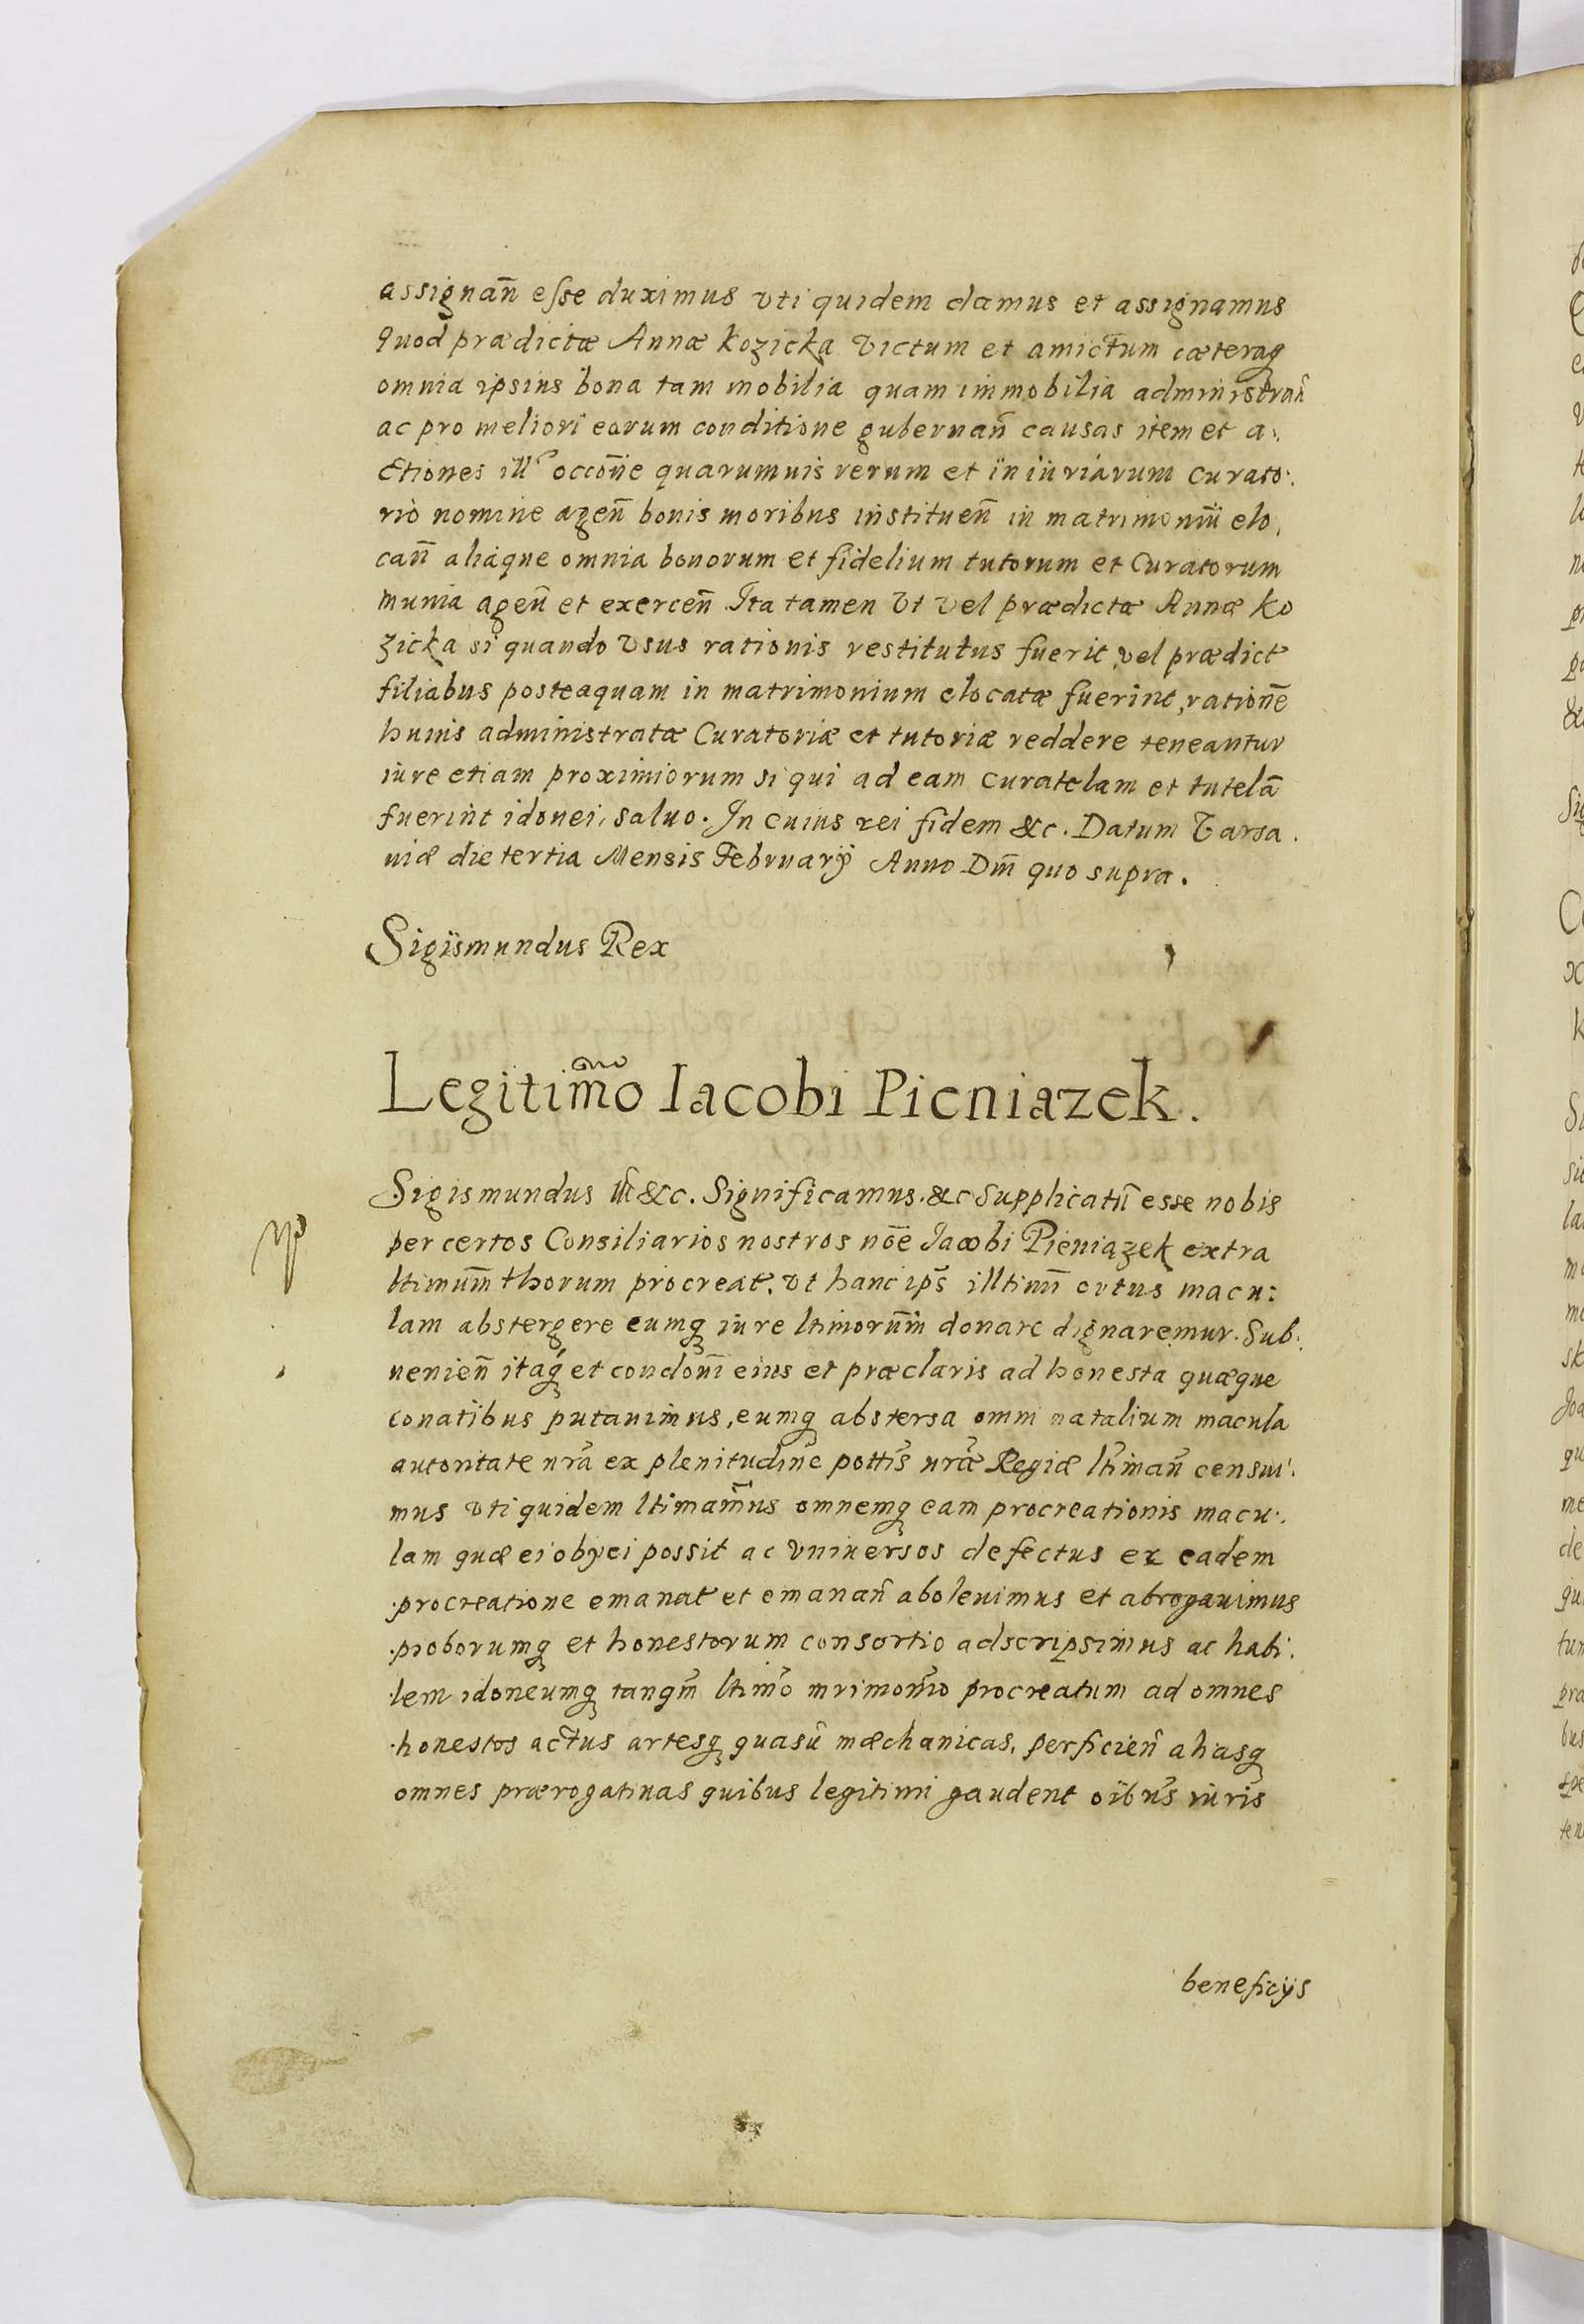 assignan̄ esse duximus vti quidem damus et assignamus
quod prædictæ Annæ Kozicka victum et amictum cæteraq
omnia ipsius bona tam mobilia quam immobilia administran̄
ac pro meliori eorum conditione gubernan̄ causas item et a
ctiones occōne quarumuis rerum et iniuriarum curato:
rio nomine agen̄ bonis moribus instituen̄ in matrimoniū elo,
can̄ aliaque omnia bonorum et fidelium tutorum et Curatorum
munia agen̄ et exercen̄ Ita tamen vt vel prædictæ Annæ Ko
zicka si quando vsus rationis restitutus fuerit vel prædict
filiabus posteaquam in matrimonium elocatæ fuerint, rationē
huius administratæ Curatoriæ et tutoriæ reddere teneantur
iure etiam proximiorum si qui ad eam curatelam et tutelā
fuerint idonei, saluo. In cuius rei fidem &c. Datum Varsa.
uiæ die tertia Mensis February Anno Dm̄ quo supra.
Sigismundus Rex
Legitimo͞ Iacobi Pieniazek.
Sigismundus &c. Significamus. &c Supplicatū esse nobis
per certos Consiliarios nostros nōe Jacobi Pieniązek extra
ltimum̄ thorum procreat. vt hanc ips̄ illtimi ortus macu:
lam abstergere eumq iure ltimorum̄ donare dignaremur. Sub:
uenien̄ itaq et condoni eius et præclaris ad honesta quæque
conatibus putauimus, eumq abstersa omni natalium macula
autoritate nr̄a ex plenitudine pottis̄ nr̄æ Regiæ ltiman̄ censui:
mus vti quidem ltimam̄us omnemq eam procreationis macu:
lam quæ ei obyci possit ac vniuersos defectus ex eadem
procreatione emanat et emanan̄ aboleuimus et abrogauimus
proborumq et honestorum consortio adscripsimus ac habi:
lem idoneumq tanqm̄ ltimo͞ mrimonio͞ procreatum ad omnes
honestos actus artesq quasū mæchanicas, perficien̄ aliasq
omnes prærogatiuas quibus legitimi gaudent oibus̄ iuris
beneficÿs